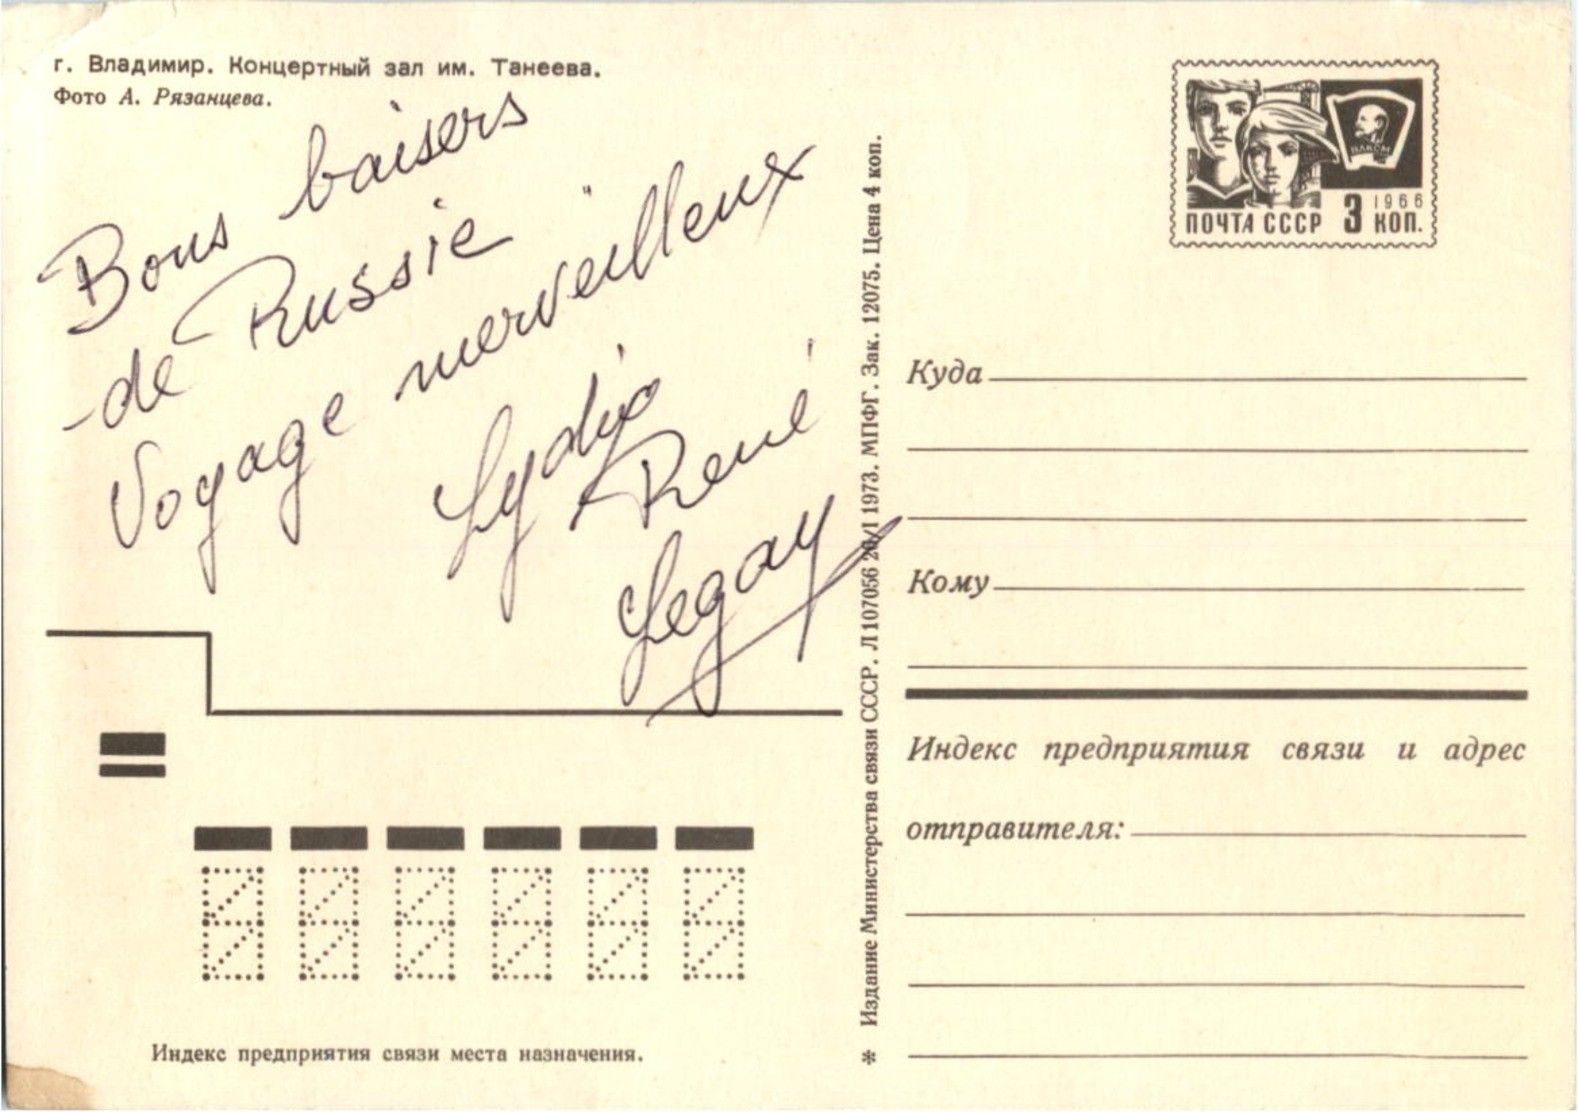 г. Владимир. Концертный зал им. Танеева.
Фото А. Рязанцева.
Bons baisers
de Russie
Voyage merveilleux
Lydia
René
Legay
Индекс предприятия связи места назначения.
Издание Министерства связи СССР. Л 107056 20/I 1973. МПФГ. Зак. 12075. Цена 4 коп.
ВЛКСМ
1966
ПОЧТА СССР 3 КОП.
Куда
Кому
Индекс предприятия связи и адрес
отправителя: